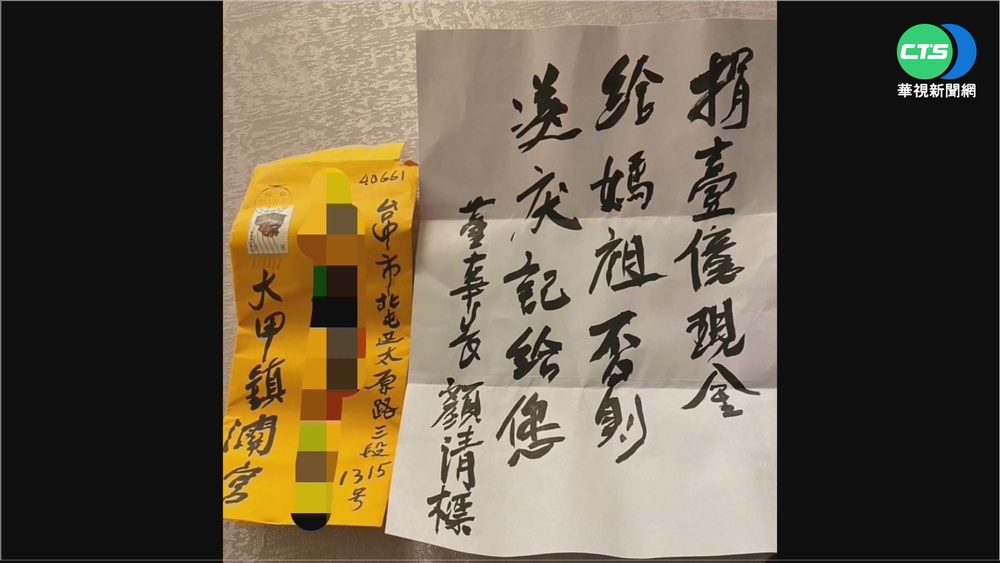 CTS
華視新聞網
捐壹億現金
給媽祖否則
送庆記給您
董事長顏清標
40661
台中市北屯区太原路三段
1315号
大甲鎮瀾宮